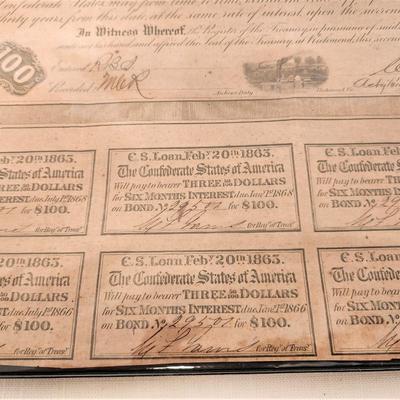 Confederate States may from time to time,
twenty years from this date at the same rate of interest, upon the surren
In Witness Whereof, the Register of the Treasury, in pursuance of said
set his hand and affixed the Seal of the Treasury, at Richmond, this second
100
Entered
Recorded
Archer & Daly
Richmond, Va.
1863.
of America
DOLLARS
due July 1st 1868
for $100.
for Reg. of Treasy.
C.S. Loan, Feby. 20th 1863.
The Confederate States of America
Will pay to bearer THREE 50/100 DOLLARS
for SIX MONTHS INTEREST due Jany. 1st 1868
on BOND No. 29501 for $100.
for Reg. of Treasy.
C.S. Loan, Fe
The Confedera
Will pay to bea
for SIX MONT
on BOND. No.
1863.
of America
DOLLARS
due July 1st 1866
for $100.
for Reg. of Treasy.
C.S. Loan, Feby. 20th 1863.
The Confederate States of America
Will pay to bearer THREE 50/100 DOLLARS
for SIX MONTHS INTEREST due Jany. 1st 1866
on BOND. No. 29501 for $100.
for Reg. of Treasy.
C.S. Loan, F
The Confeder
Will pay to be
for SIX MONT
on BOND. No.